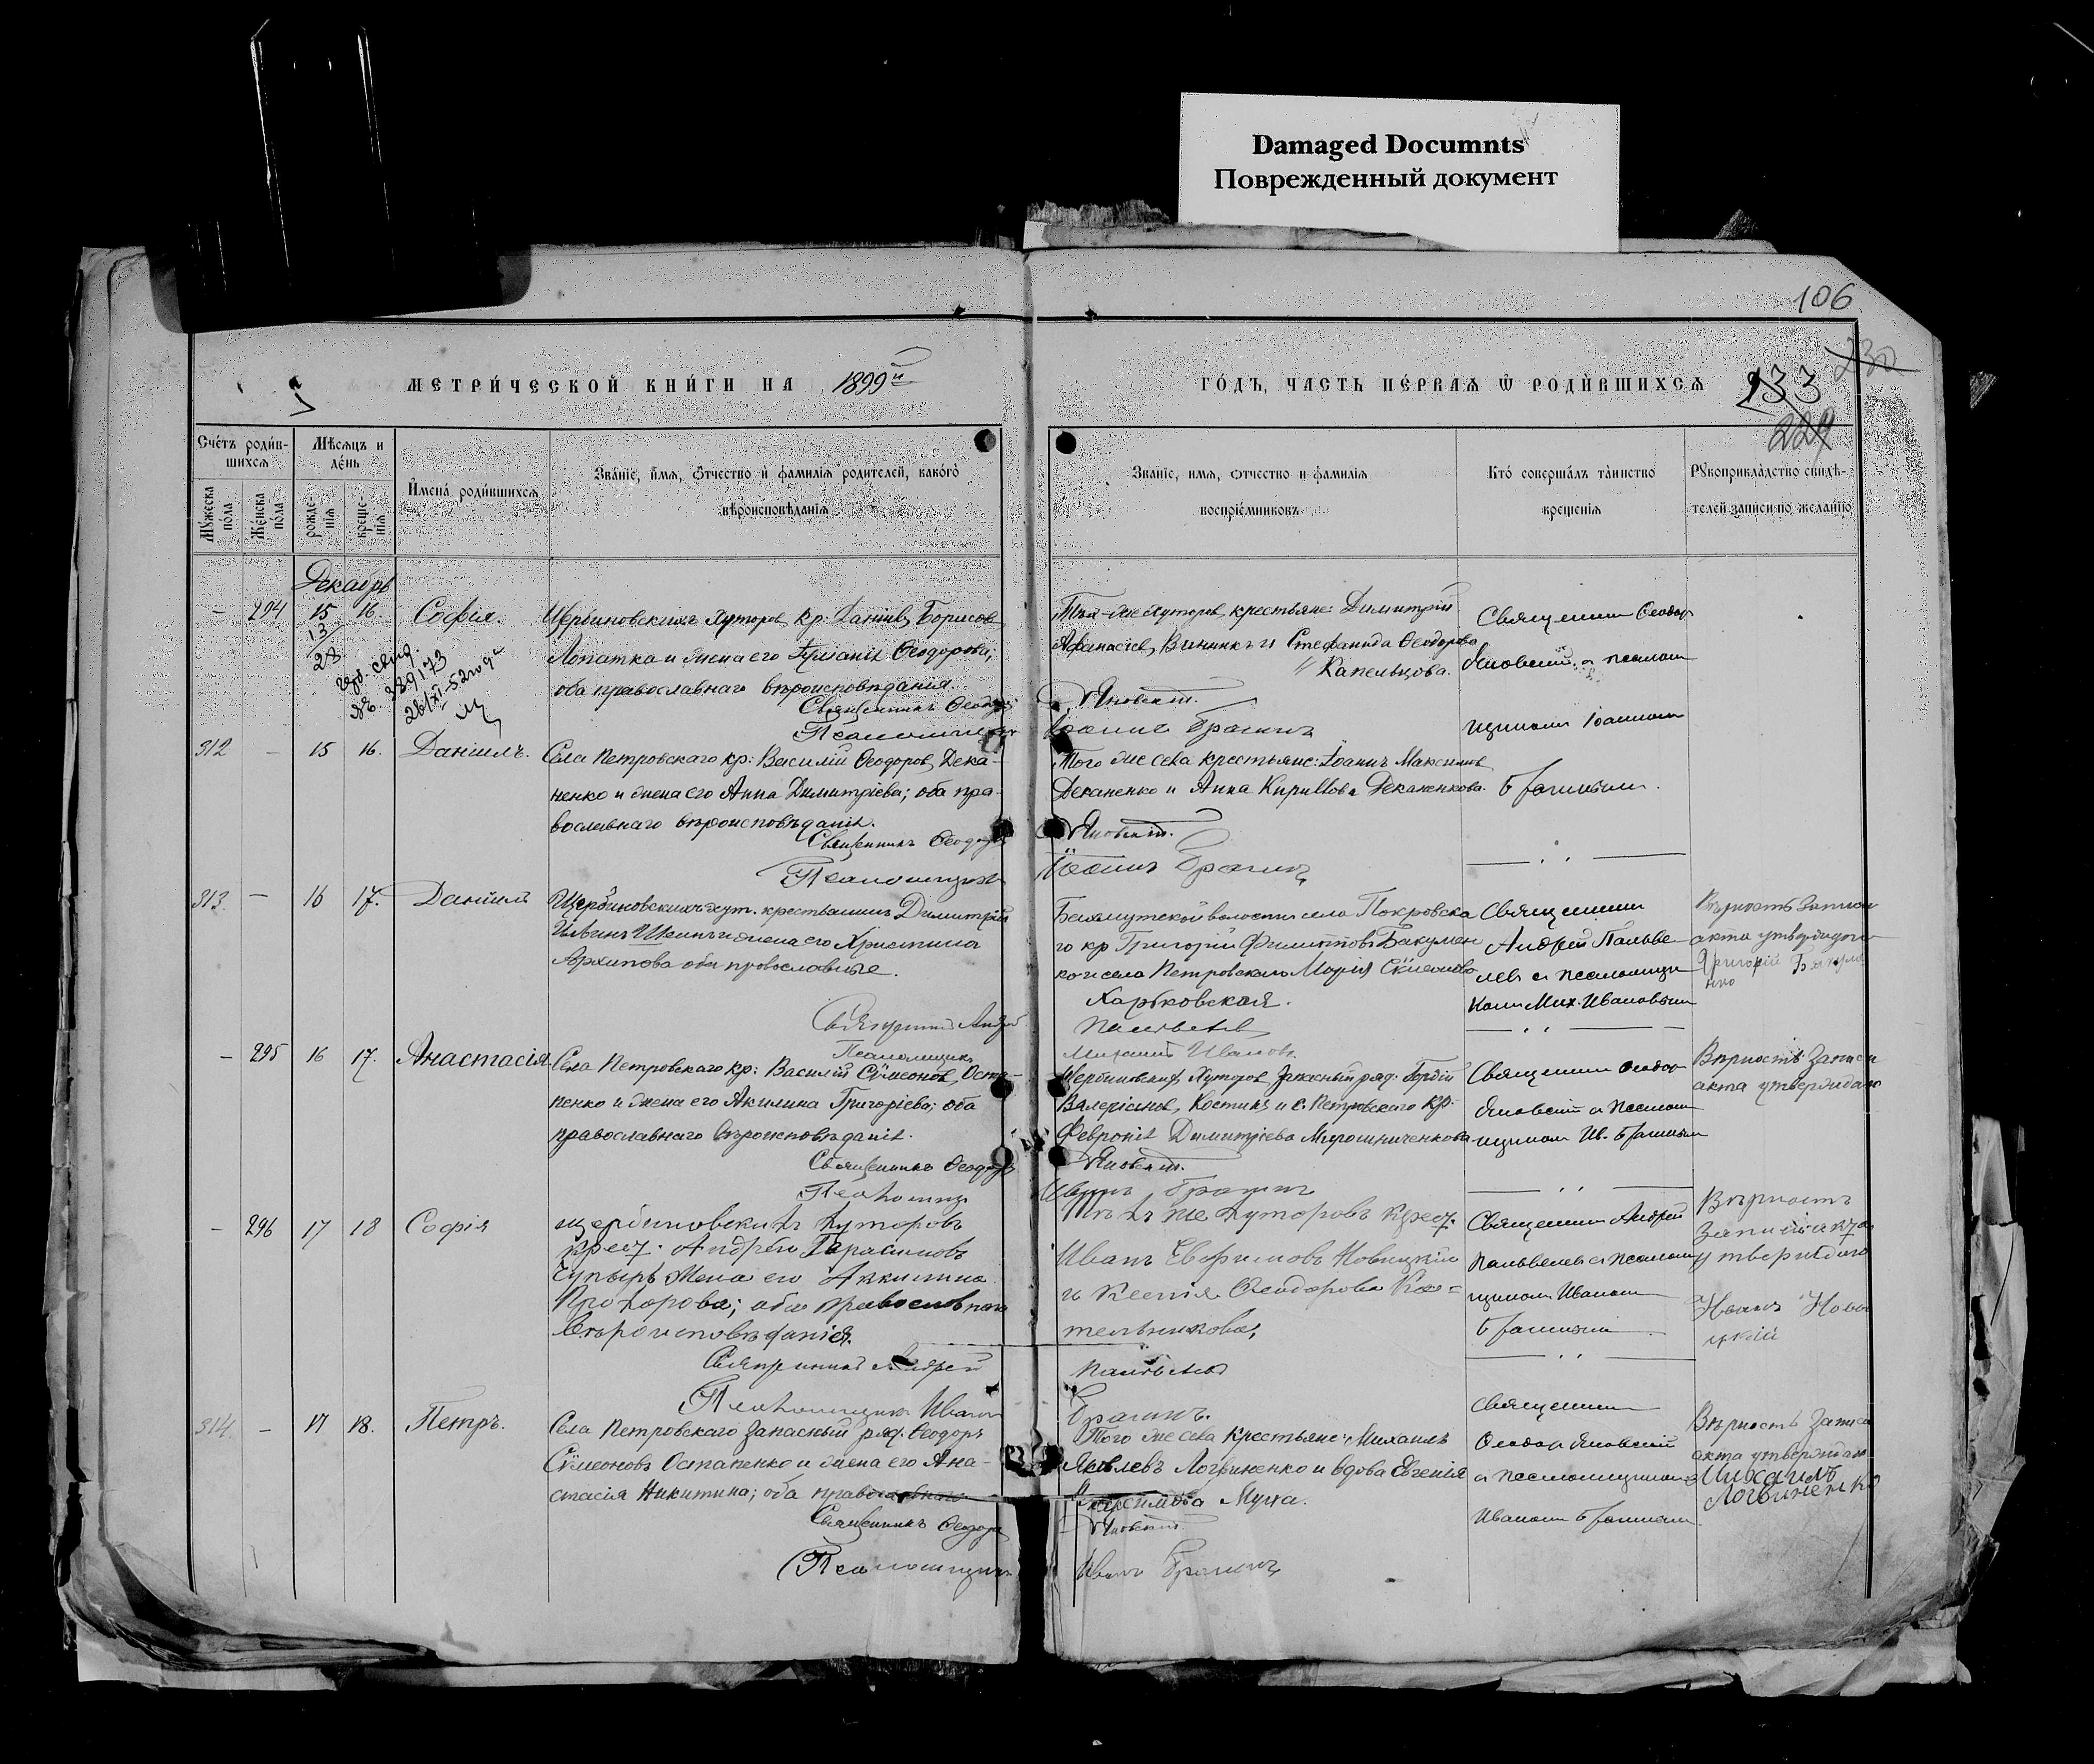 Damaged Documnts
Поврежденный документ
106
МЕТРИ́ЧЕСКОЙ КНИ́ГИ НА 1899й
ГО́ДЪ, ЧАСТЬ ПЕ́РВАѦ Ѡ РОДИ́ВШИХСѦ
133
230
229
Сче́тъ роди́вшихсѧ
Мꙋ́жеска по́ла
Же́нска по́ла
Мѣ́сѧцъ и де́нь
рожде́нїѧ
креще́нїѧ
И҆мена̀ роди́вшихсѧ
Зва́нїе, и҆́мѧ, ѻ҆́тчество и҆ фамилїѧ родителей, како́гѡ
вѣроисповѣданїѧ
Зва́нїе, имѧ, ѻтчество и фамилїѧ
воспрїе́мниковъ
Кто̀ соверша́лъ та́инство
креще́нїѧ
Рꙋкоприкла́дство свидѣ́-
телей записи по желанїю
Декабрь
– 294 15 16. Софія.
Щербиновскихъ Хуторов, кр: Даніилъ Борисов
Лопатка и жена его Іуліанія Ѳеодорова;
оба православнаго вѣроисповѣданія.
Священникъ Ѳеодоръ
Псаломщикъ
Тѣхъ-же Хуторов, крестьяне: Димитрій
Афанасіев, Винникъ и Стефанида Ѳеодорова
Капельцова.
Яновскій.
Іоаннъ Брагинъ
Священник Ѳеодор
Яновский с псалом
щиком Іоанном
Брагиным.
13
28
№. 389173
312 – 15 16. Даніилъ.
Села Петровскаго кр: Василій Ѳеодоров, Дека-
ненко и жена его Анна Димитріева; оба пра-
вославнаго вѣроисповѣданія.
Священникъ Ѳеодоръ
Псаломщикъ
Того же села крестьяне: Іоаннъ Максимов
Деканенко и Анна Кириллова Деканенкова.
Яновскій.
Іоаннъ Брагинъ
313. – 16 17. Даніилъ
Щербиновскихъ хут. крестьянинъ Димитрій
Ильинъ и жена его Христина
Архипова оба православные.
Священникъ Андрей
Псаломщикъ
Бахмутской волости села Покровска
го кр Григорій Филиппов Бакумен
ко и села Петровскаго Марія Сѵмеонова
Харьковская.
Михаилъ Иванов
Священник
Андрей Пальве-
лев с псаломщи
ком Мих. Ивановым
Вѣрность записи
акта утверждаю
Григорій Бакуме
нко
– 295 16 17. Анастасія
Села Петровскаго кр: Василій Сѵмеонов, Оста-
пенко и жена его Акилина Григоріева; оба
православнаго вѣроисповѣданія.
Священникъ Ѳеодоръ
Псаломщикъ
Щербиновских Хуторов Запасный ряд: Гордій
Валеріанов, Костинъ и с. Петровскаго кр.
Февронія Димитріева Мирошниченкова
Яновскій.
Иванъ Брагинъ
Священник Ѳеодор
Яновский с псалом
щиком Ив. Брагиным
Вѣрность Записи
акта утверждаю
– 296 17 18 Софія
Щербиновскихъ Хуторовъ
крест. Андрей Герасимовъ
жена его Аккилина
Прохорова; оба православнаго
вѣроисповѣданія.
Священникъ Андрей
Псаломщикъ Иванъ
Тѣхъ же Хуторовъ крест.
Иванъ Евфимовъ Новицкій
и Ксенія Ѳеодорова Ко-
тельникова,
Брагинъ.
Священник Андрей
Пальвелев с псалом
щиком Иваном
Брагиным
Вѣрность
записи акта
утверждаю
Иванъ Нови
цкій
314. – 17 18. Петръ.
Села Петровскаго Запасный ряд. Ѳеодоръ
Сѵмеоновъ Остапенко и жена его Ана-
стасія Никитина; оба православнаго
Священникъ Ѳеодоръ
Псаломщикъ
Того же села крестьяне: Михаилъ
Яковлевъ Логвиненко и вдова Евгенія
Муха.
Яновскій.
Иванъ Брагинъ
Священник
Ѳеодор Яновский
с псаломщиком
Иваном Брагиным
Вѣрность Записи
акта утверждаю
Михаилъ
Логвиненко